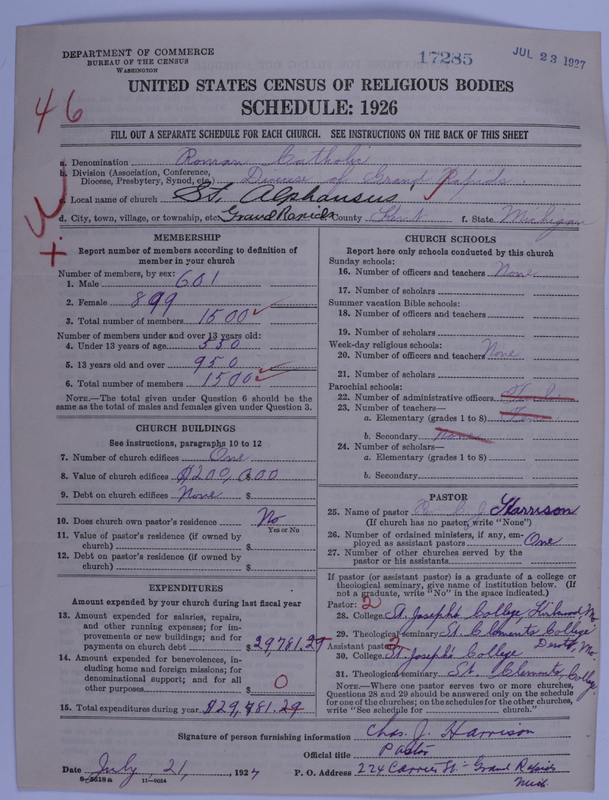 DEPARTMENT OF COMMERCE
BUREAU OF THE CENSUS
WASHINGTON
17285
JUL 23 1927
46
UNITED STATES CENSUS OF RELIGIOUS BODIES
SCHEDULE: 1926
FILL OUT A SEPARATE SCHEDULE FOR EACH CHURCH. SEE INSTRUCTIONS ON THE BACK OF THIS SHEET
a. Denomination Roman Catholic
b. Division (Association, Conference,
Diocese, Presbytery, Synod, etc.) Diocese of Grand Rapids
c. Local name of church St. Alphonsus
d. City, town, village, or township, etc. Grand Rapids County Kent f. State Michigan
MEMBERSHIP
Report number of members according to definition of
member in your church
Number of members, by sex:
1. Male 601
2. Female 899
3. Total number of members 1500
Number of members under and over 13 years old:
4. Under 13 years of age 550
5. 13 years old and over 950
6. Total number of members 1500
NOTE.—The total given under Question 6 should be
same as the total of males and females given under Question 3.
CHURCH BUILDINGS
See instructions, paragraphs 10 to 12
7. Number of church edifices One
8. Value of church edifices $200,000
9. Debt on church edifices None $
10. Does church own pastor's residence No
Yes or No
11. Value of pastor's residence (if owned by
church) $
12. Debt on pastor's residence (if owned by
church) $
EXPENDITURES
Amount expended by your church during last fiscal year
13. Amount expended for salaries, repairs,
and other running expenses; for im-
provements or new buildings; and for
payments on church debt $29,781.29
14. Amount expended for benevolences, in-
cluding home and foreign missions; for
denominational support; and for all
other purposes $ 0
15. Total expenditures during year $29,781.29
CHURCH SCHOOLS
Report here only schools conducted by this church
Sunday schools:
16. Number of officers and teachers None
17. Number of scholars
Summer vacation Bible schools:
18. Number of officers and teachers
19. Number of scholars
Week-day religious schools:
20. Number of officers and teachers None
21. Number of scholars
Parochial schools:
22. Number of administrative officers
23. Number of teachers—
a. Elementary (grades 1 to 8) None
b. Secondary None
24. Number of scholars—
a. Elementary (grades 1 to 8)
b. Secondary
PASTOR
25. Name of pastor C. J. Harrison
(If church has no pastor, write "None")
26. Number of ordained ministers, if any, em-
ployed as assistant pastors One
27. Number of other churches served by the
pastor or his assistants
If pastor (or assistant pastor) is a graduate of a college or
theological seminary, give name of institution below. (If
not a graduate, write "No" in the space indicated.)
Pastor: 2
28. College St. Josephs College, Kirkwood, Mo
29. Theological seminary St. Clements College
Assistant pastor: 2 Desoto, Mo.
30. College St. Josephs College
31. Theological seminary St. Clements, College
NOTE.—Where one pastor serves two or more churches,
Questions 28 and 29 should be answered only on the schedule
for one of the churches; on the schedules for the other churches,
write "See schedule for church."
Signature of person furnishing information Chas. J. Harrison
Official title Pastor
Date July 21, 1927
P. O. Address 224 Carrier St - Grand Rapids
Mich.
8-5218a 11-9034